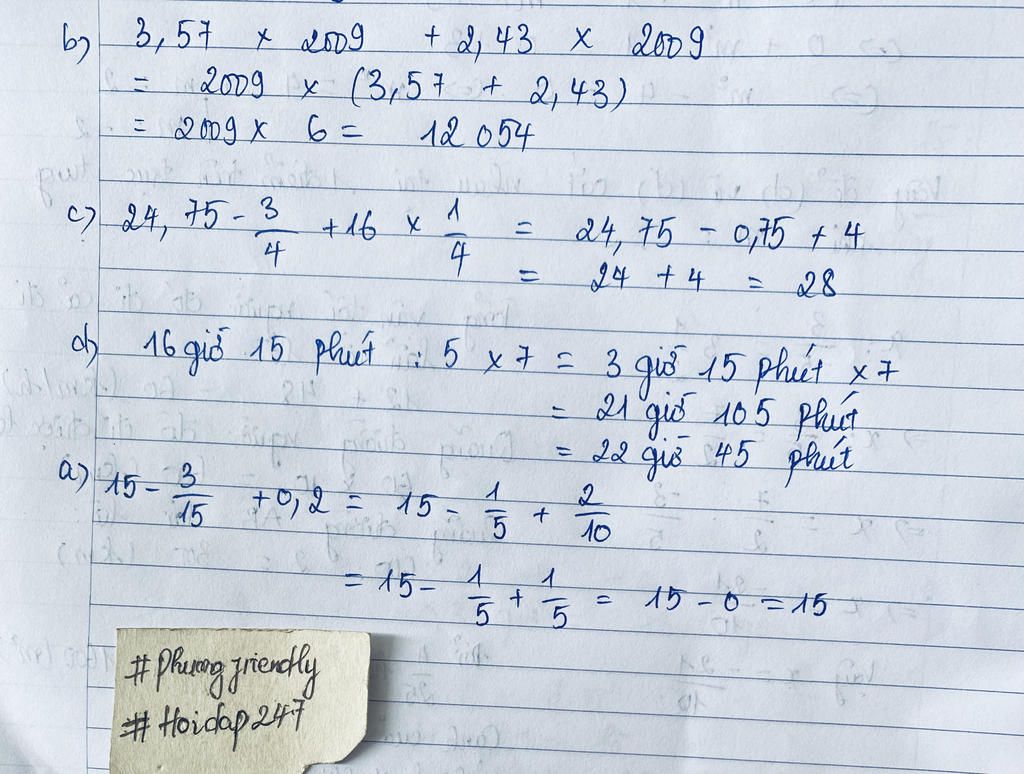 b) 3,57 × 2009 + 2,43 × 2009
= 2009 × (3,57 + 2,43)
= 2009 × 6 = 12 054
c) 24,75 - 3/4 + 16 × 1/4 = 24,75 - 0,75 + 4
= 24 + 4 = 28
d) 16 giờ 15 phút : 5 × 7 = 3 giờ 15 phút × 7
= 21 giờ 105 phút
= 22 giờ 45 phút
a) 15 - 3/15 + 0,2 = 15 - 1/5 + 2/10
= 15 - 1/5 + 1/5 = 15 - 0 = 15
# Phuongfriendly
# Hoidap247